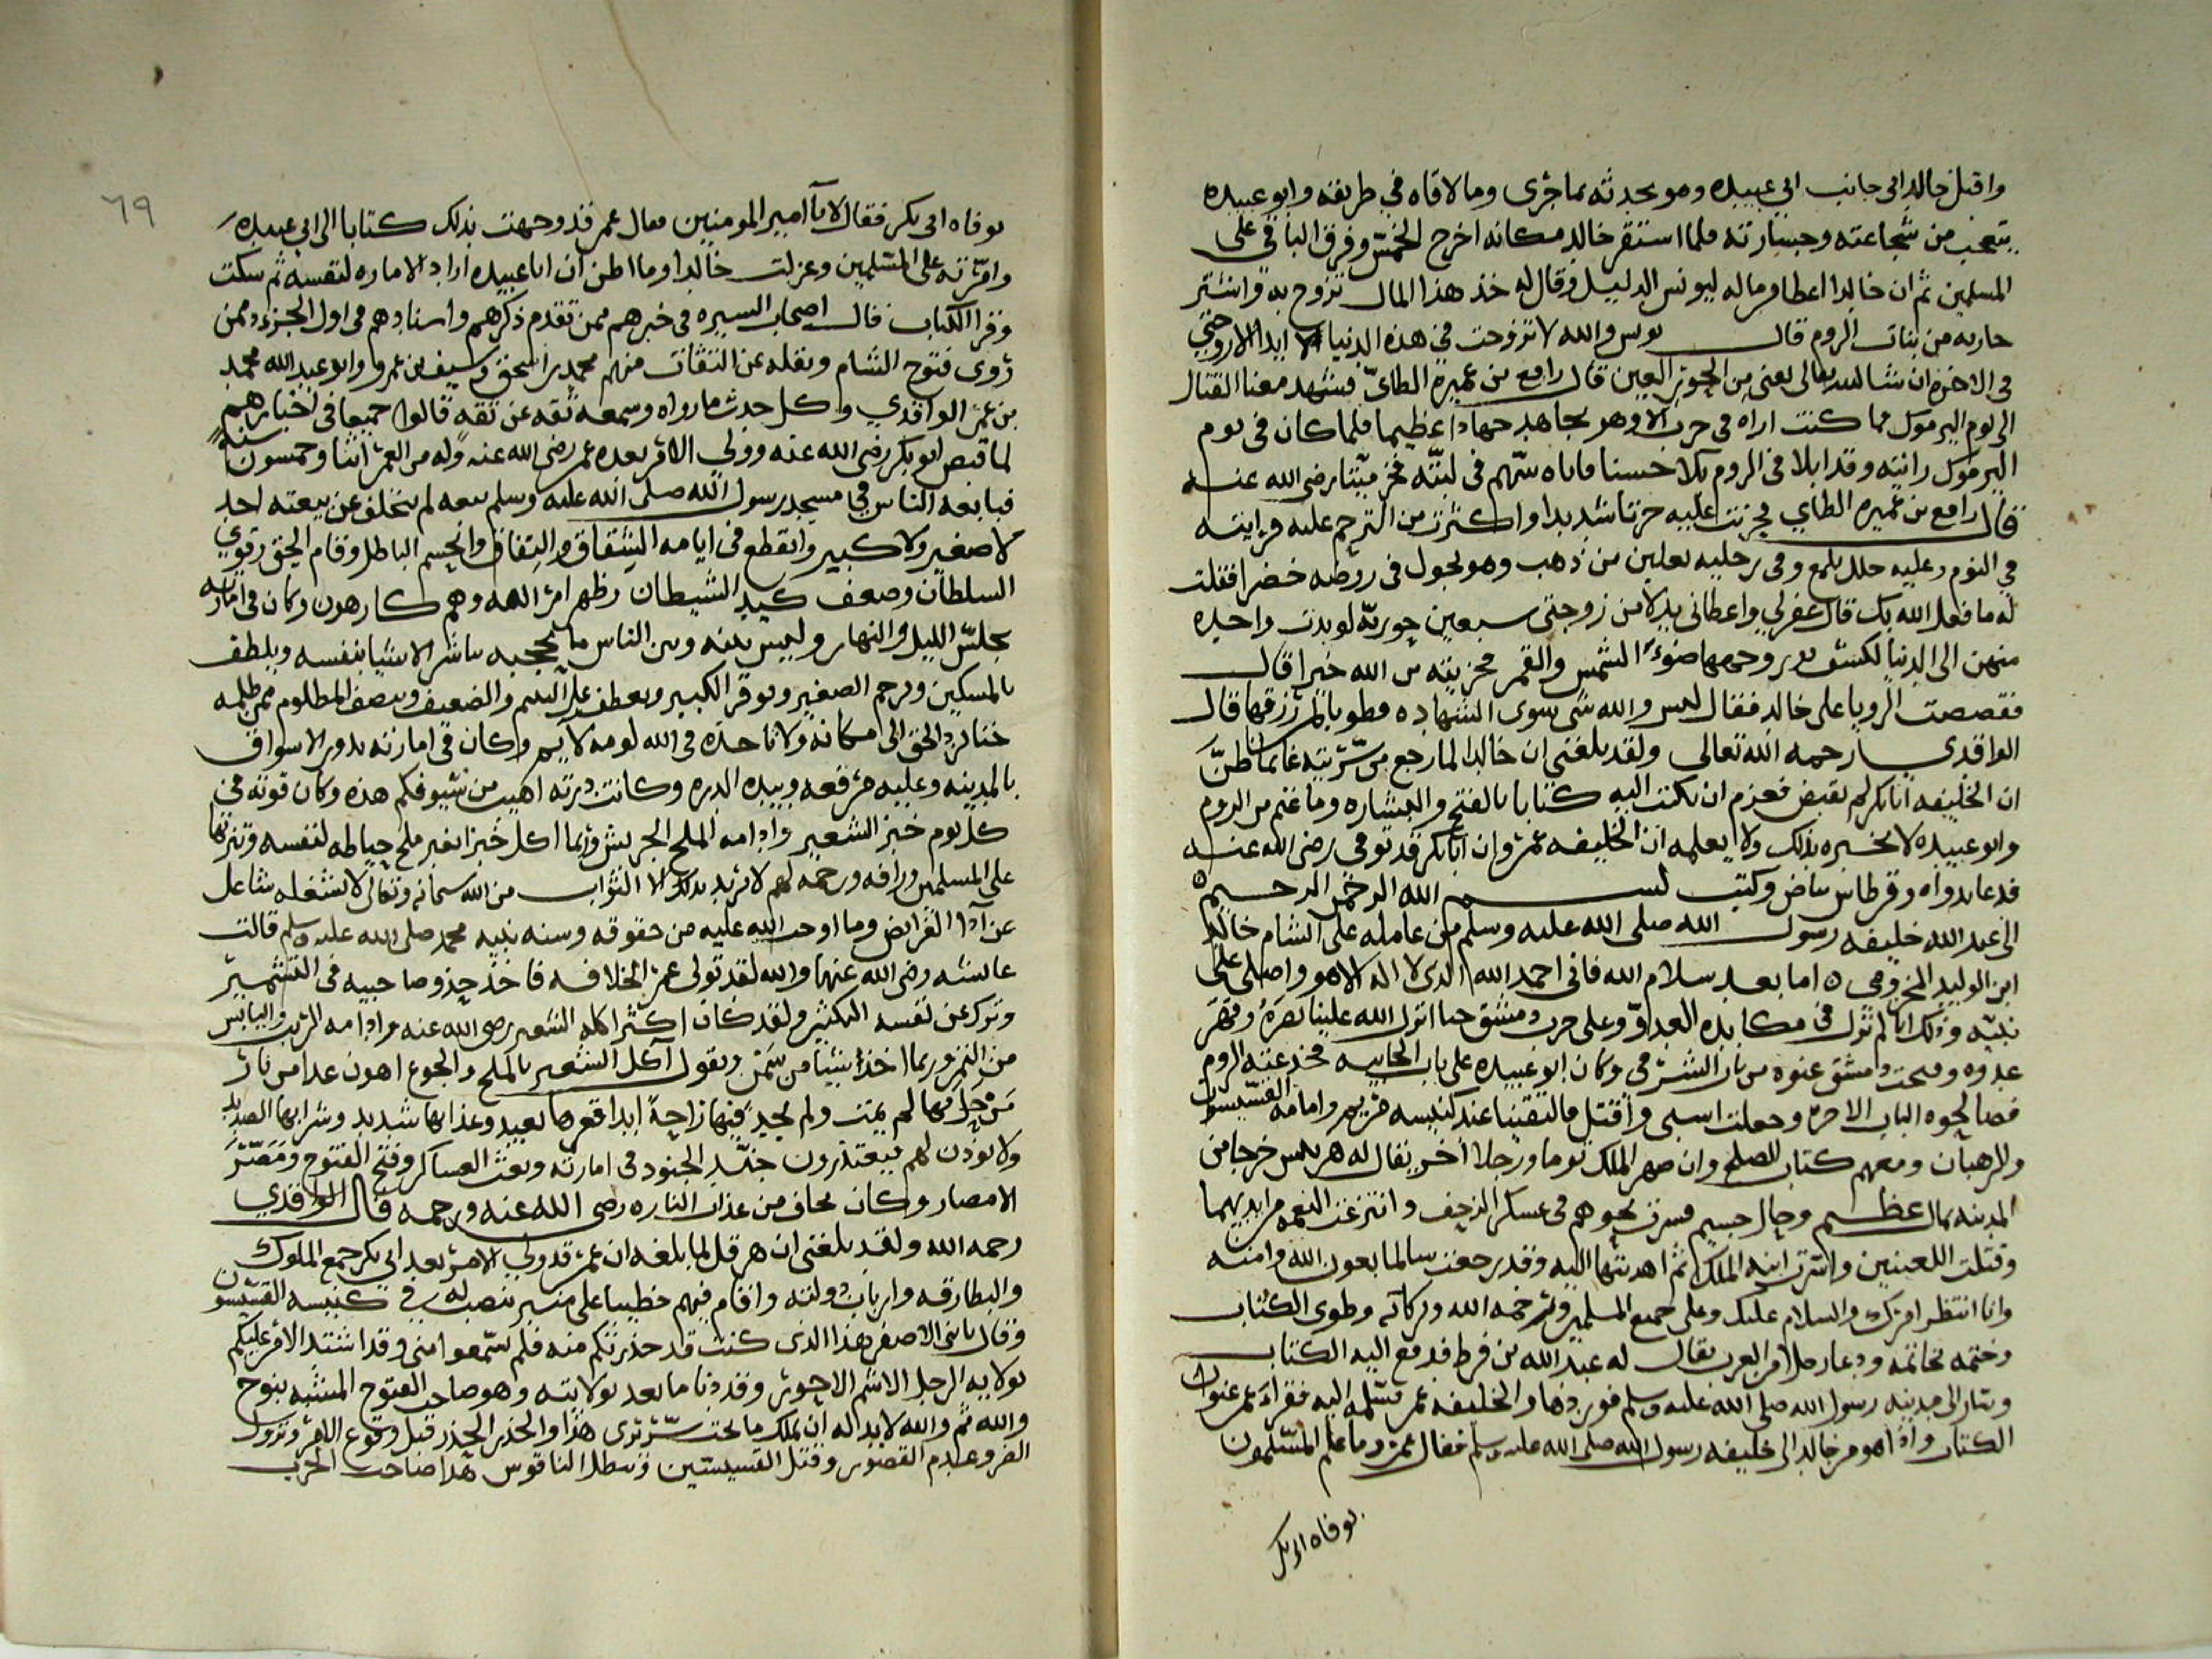 واقبل خالد الى جانب ابي عبيده وهو يحدثه بما جرى وما لاقاه في طريقه وابو عبيده
يتعجب من شجاعته وجسارته فلما استقر خالد مكانه اخرج الخمس وفرق الباقي على
المسلمين ثم ان خالدا اعطا من ماله ليونس الدليل وقال له خذ هذا المال تزوج به واشتر
جاريه من بنات الروم قال يونس والله لا تزوجت في هذه الدنيا ابدا الا زوجتي
في الاخره ان شا الله تعالى يعني من الحور العين قال رافع بن عميرة الطائي فشهد معنا القتال
الى يوم اليرموك فما كنت اراه في حرب الا وهو يجاهد جهادا عظيما فلما كان في يوم
اليرموك رايته وقد ابلا في الروم بلا حسنا فاتاه سهم في لبته فخر ميتا رضي الله عنه
قال رافع بن عميره الطاي فحزنت عليه حزنا شديدا واكثرت من الترحم عليه فرايته
في النوم وعليه حلل تلمع وفي رجليه نعلين من ذهب وهو يجول في روضه خضرا فقلت
له ما فعل الله بك قال غفر لي واعطاني بدلا من زوجتي سبعين حوريه لو بدت واحده
منهن الى الدنيا لكشف نور وجهها ضوء الشمس والقمر فجزيته من الله خيرا قال
فقصصت الرويا على خالد فقال ليس والله شي سوى الشهاده فطوبا لمن رزقها قال
الواقدي رحمه الله تعالى ولقد بلغني ان خالدا لما رجع من سريته غانما ظن
ان الخليفه ابا بكر لم يقبض فعزم ان يكتب اليه كتابا بالفتح والبشاره وما غنم من الروم
وابو عبيده لا يخبره بذلك ولا يعلمه ان الخليفه عمر وان ابا بكر قد توفي رضي الله عنه
فدعا بدواه وقرطاس بياض وكتب بسم الله الرحمن الرحيم
الى عبد الله خليفه رسول الله صلى الله عليه وسلم من عامله على الشام خالد
ابن الوليد المخزومي اما بعد سلام الله فاني احمد الله الذي لا اله الا هو واصلي على
نبيه وذلك انا لم نزل في مكابده العدو وعلى حرب دمشق حتا انزل الله علينا نصره وقهر
عدوه وفتحت دمشق عنوه من باب الشرقي وكان ابو عبيده على باب الجابيه فخدعته الروم
فصالحوه الباب الاخر وجعلت اسبي واقتل فالتقينا عند كنيسه مريم وامامه القسيسون
والرهبان ومعهم كتاب الصلح وان صهر الملك توما ورجلا اخر يقال له هربيس خرجا من
المدينه بمال عظيم وحال جسيم فسرت نحوهم في عسكر الزحف وانتزعت النعمه من ايديهما
وقتلت اللعينين واسرت ابنه الملك ثم اهديتها اليه وقد رجعت سالما بعون الله وامنه
وانا انتظر امرك والسلام عليك وعلى جميع المسلمين ورحمه الله وبركاته وطوى الكتاب
وختمه بخاتمه ودعا رجلا من العرب يقال له عبد الله بن قرط فدفع اليه الكتاب
وسار الى مدينه رسول الله صلى الله عليه وسلم فوردها والخليفه عمر فسلمه اليه فقراء عمر عنوان
الكتاب واذا هو من خالد الى خليفه رسول الله صلى الله عليه وسلم فقال عمر وما علم المسلمون
بوفاه ابي بكر
٦٩
بوفاه ابى بكر فقال لا يا امير المومنين فقال عمر قد وجهت بذلك كتابا الى ابي عبيده
وامرته على المسلمين وعزلت خالدا وما اظن ان ابا عبيده اراد الاماره لنفسه ثم سكت
وقرا الكتاب قال اصحاب السيره في خبرهم ممن تقدم ذكرهم واسنادهم في اول الجزء ممن
روى فتوح الشام ونقله عن الثقات منهم محمد بن اسحق وسيف بن عمرو وابو عبد الله محمد
بن عمر الواقدي وكل حدث ما رواه وسمعه ثقه عن ثقه قالوا جميعا في اخبارهم
لما قبض ابو بكر رضي الله عنه وولي الامر بعده عمر رضي الله عنه وله من العمر اثنا وخمسون سنه
فبايعه الناس في مسجد رسول الله صلى الله عليه وسلم بيعه لم يتخلف عن بيعته احد
لا صغير ولا كبير وانقطع في ايامه الشقاق والنفاق وانحسم الباطل وقام الحق وقوي
السلطان وضعف كيد الشيطان وظهر امر الله وهم كارهون وكان في امارته
يجلس الليل والنهار وليس بينه وبين الناس ما يحجبه باشر الاشيا بنفسه ويلطف
بالمسكين ويرحم الصغير ويوقر الكبير ويعطف على اليتيم والضعيف وينصف المظلوم ممن ظلمه
حتا يرد الحق الى مكانه ولا تاخذه في الله لومه لايم وكان في امارته يدور الاسواق
بالمدينه وعليه مرقعه وبيده الدره وكانت درته اهيب من سيوفكم هذه وكان قوته في
كل يوم خبز الشعير وادامه الملح الجريش وربما اكل خبزا بغير ملح حياطه لنفسه وتنزها
على المسلمين ورافه ورحمه لهم لا يريد بذلك الا الثواب من الله سبحانه وتعالى لا يشغله شاغل
عن ادا الفرايض وما اوجب الله عليه من حقوقه وسنه نبيه محمد صلى الله عليه وسلم قالت
عايشه رضي الله عنها والله لقد تولى عمر الخلافه فاخذ حذو صاحبيه في التشمير
وترك عن نفسه التكثير ولقد كان اكثر اكله الشعير رضي الله عنه وادامه الزيت واليابس
من التمر وربما اخذ شيئا من سمن ويقول اكل الشعير بالملح والجوع اهون غدا من نار
من حل فيها لم يمت ولم يجد فيها راحة ابدا قعرها بعيد وعذابها شديد وشرابها الصديد
ولا يوذن لهم فيعتذرون جند الجنود في امارته وبعث العساكر وفتح الفتوح ومصر
الامصار وكان يخاف من عذاب النار رضي الله عنه ورحمه قال الواقدي
رحمه الله ولقد بلغني ان هرقل لما بلغه ان عمر قد ولي الامر بعد ابي بكر جمع الملوك
والبطارقه وارباب دولته واقام فيهم خطيبا على منبر نصب له في كنيسه القسيسون
وقال يا بني الاصفر هذا الذي كنت قد حذرتكم منه فلم تسمعوا مني وقد اشتد الامر عليكم
بولايه الرجل الاسمر الاحور وقد دنا ما بعد بولايته وهو صاحب الفتوح المشبه بنوح
والله ثم والله لابد له ان يملك ما تحت سريري هذا والحذر الحذر قبل وقوع الامر ونزول
الضر وهدم القصور وقتل القسيسين وتبطل الناقوس هذا صاحب الحرب